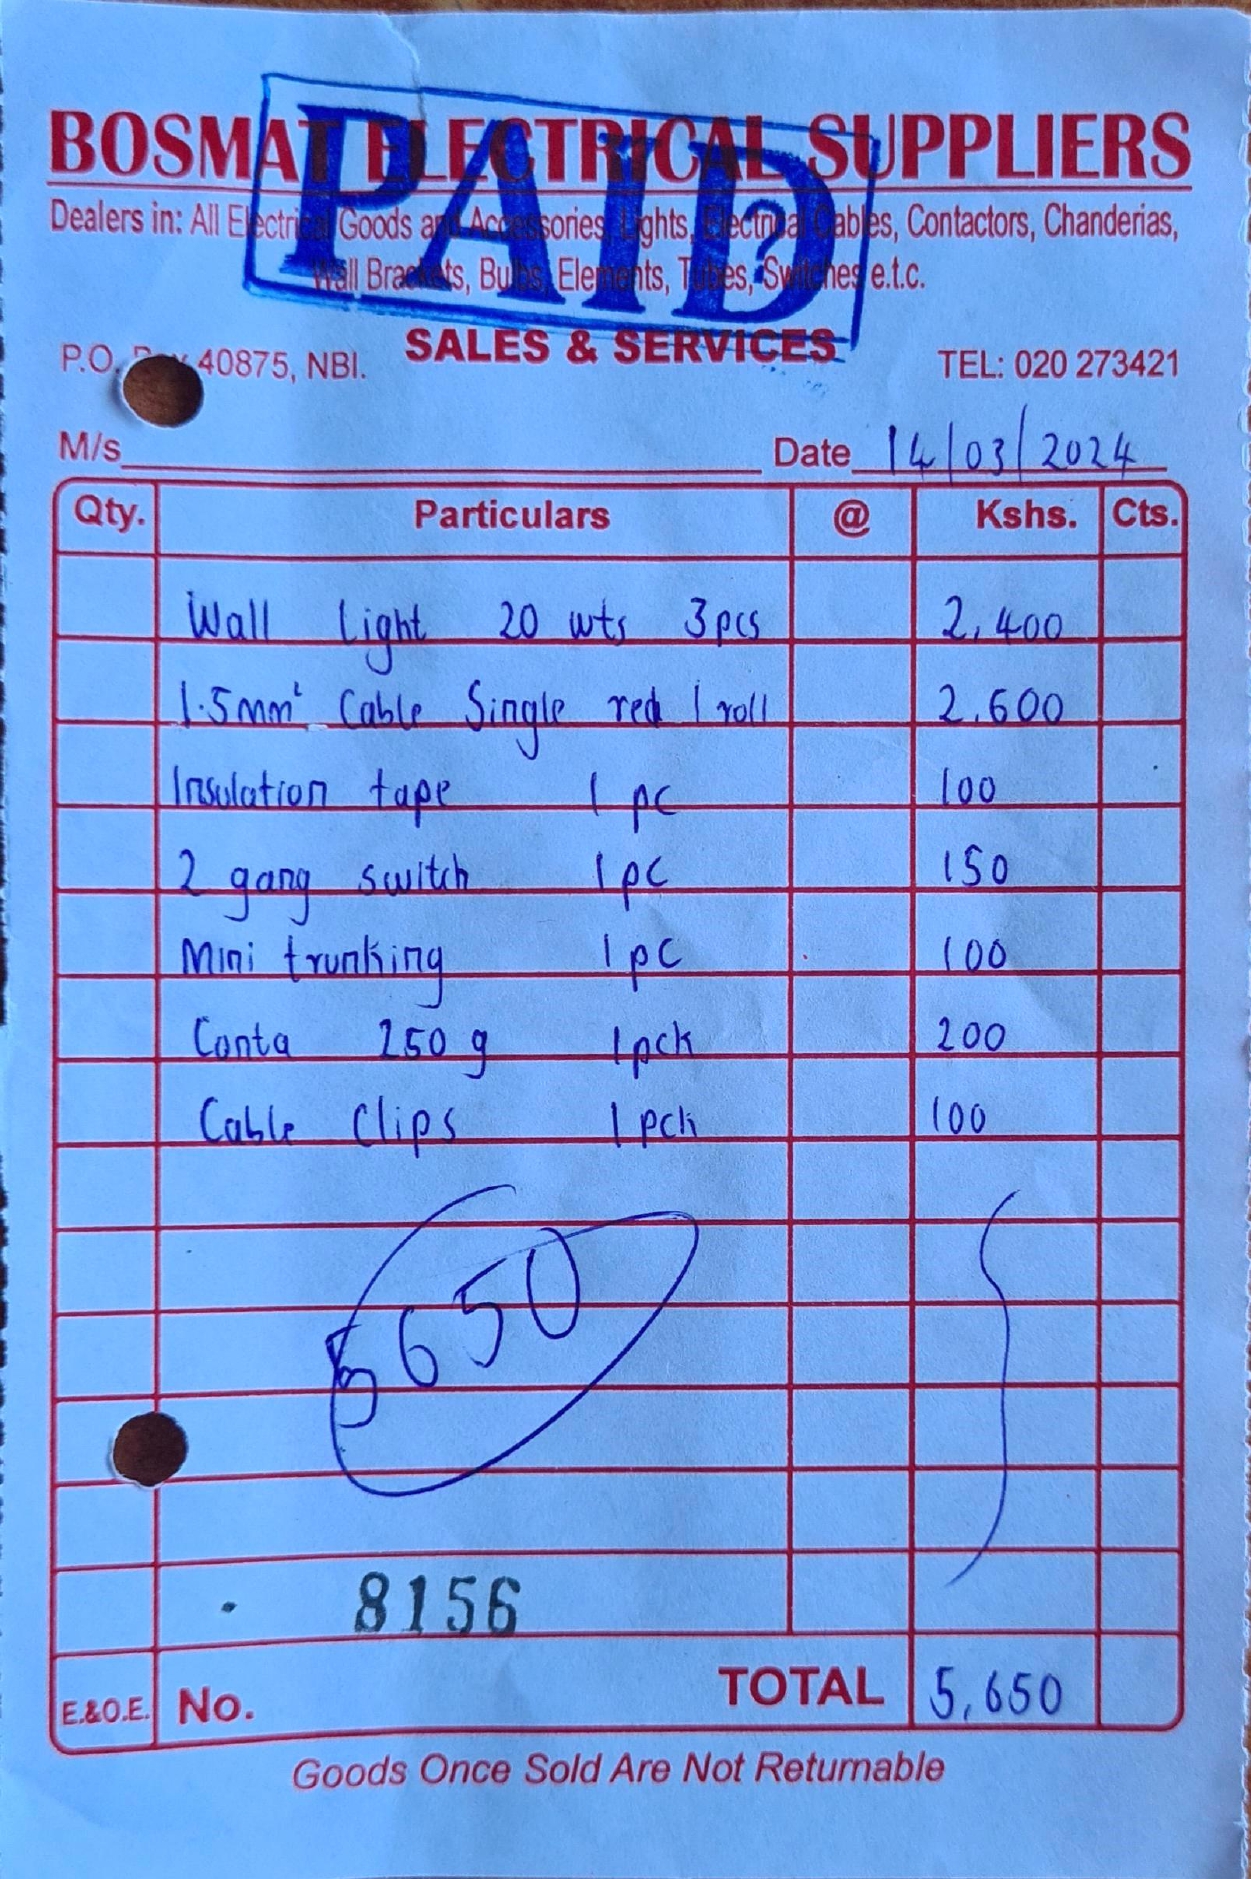 BOSMAT ELECTRICAL SUPPLIERS
PAID
Dealers in: All Electrical Goods and Accessories, Lights, Electrical Cables, Contactors, Chanderias,
Wall Brackets, Bulbs, Elements, Tubes, Switches e.t.c.
SALES & SERVICES
P.O. Box 40875, NBI. TEL: 020 273421
M/s Date 14/03/2024
Qty. Particulars @ Kshs. Cts.
Wall Light 20 wts 3pcs 2,400
1.5mm² Cable Single red 1 roll 2,600
Insulation tape 1 pc 100
2 gang switch 1pc 150
Mini trunking 1pc 100
Conta 250 g 1pck 200
Cable Clips 1pck 100
5650
8156
E.&O.E. No. TOTAL 5,650
Goods Once Sold Are Not Returnable